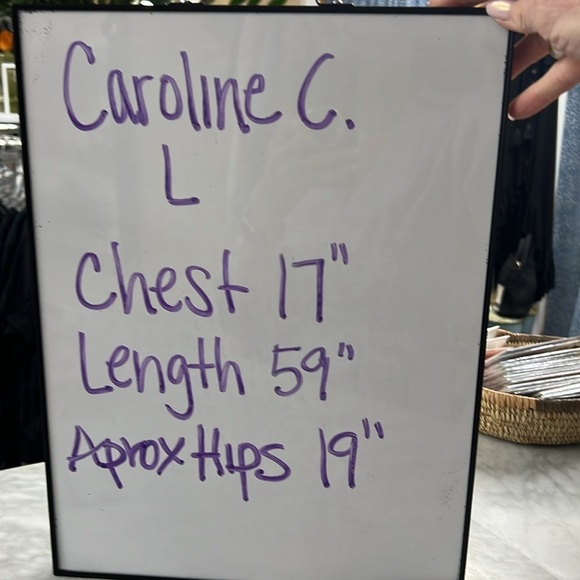 Caroline C.
L
Chest 17"
Length 59"
Aprox Hips 19"